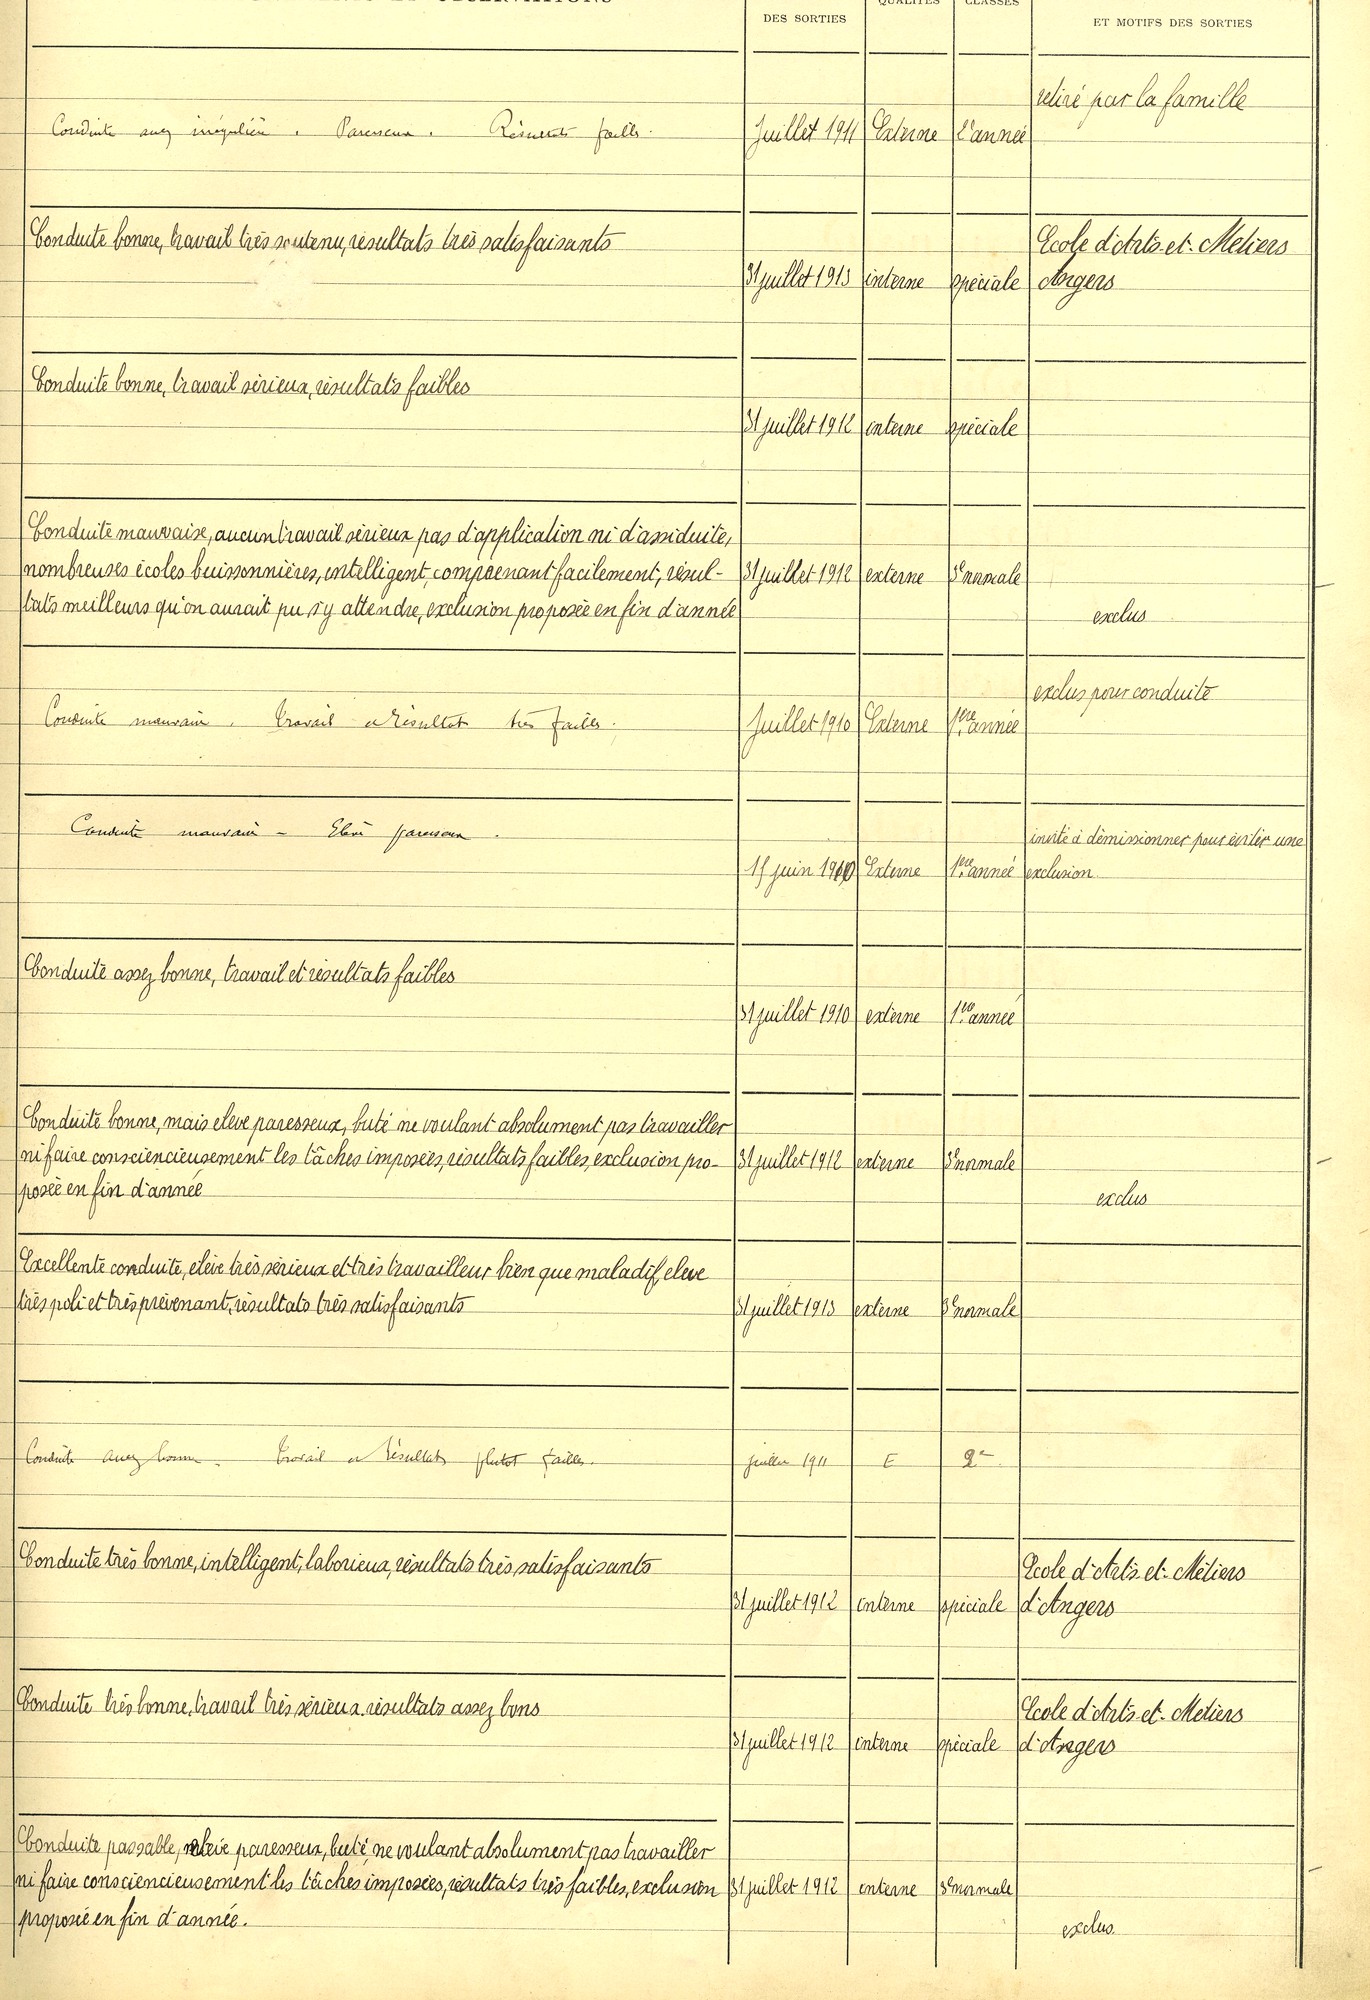 DES SORTIES
ET MOTIFS DES SORTIES
retiré par la famille
Conduite assez irrégulière. Paresseux. Résultats faibles. Juillet 1911 Externe 2e année
Conduite bonne, travail très soutenu, résultats très satisfaisants Ecole d'Arts-et-Métiers
31 juillet 1913 interne spéciale Angers
Conduite bonne, travail sérieux, résultats faibles
31 juillet 1912 interne spéciale
Conduite mauvaise, aucun travail sérieux pas d'application ni d'assiduité,
nombreuses écoles buissonnières, intelligent, comprenant facilement, résul- 31 juillet 1912 externe 3e normale
tats meilleurs qu'on aurait pu s'y attendre, exclusion proposée en fin d'année exclus
exclus pour conduite
Conduite mauvaise. Travail et résultats très faibles. Juillet 1910 Externe 1ère année
Conduite mauvaise - Elève paresseux. invité à démissionner pour éviter une
15 juin 1910 Externe 1ère année exclusion.
Conduite assez bonne, travail et résultats faibles
31 juillet 1910 externe 1ère année
Conduite bonne, mais élève paresseux, buté ne voulant absolument pas travailler
ni faire consciencieusement les tâches imposées, résultats faibles, exclusion pro- 31 juillet 1912 externe 3e normale
posée en fin d'année exclus
Excellente conduite, élève très sérieux et très travailleur bien que maladif, élève
très poli et très prévenant, résultats très satisfaisants 31 juillet 1913 externe 3e normale
Conduite assez bonne. Travail et Résultats plutôt faibles. juillet 1911 E 2e
Conduite très bonne, intelligent, laborieux, résultats très satisfaisants Ecole d'Arts-et-Métiers
31 juillet 1912 interne spéciale d'Angers
Conduite très bonne, travail très sérieux, résultats assez bons Ecole d'Arts-et-Métiers
31 juillet 1912 interne spéciale d'Angers
Conduite passable, élève paresseux, buté, ne voulant absolument pas travailler
ni faire consciencieusement les tâches imposées, résultats très faibles, exclusion 31 juillet 1912 interne 3e normale
proposée en fin d'année. exclus.